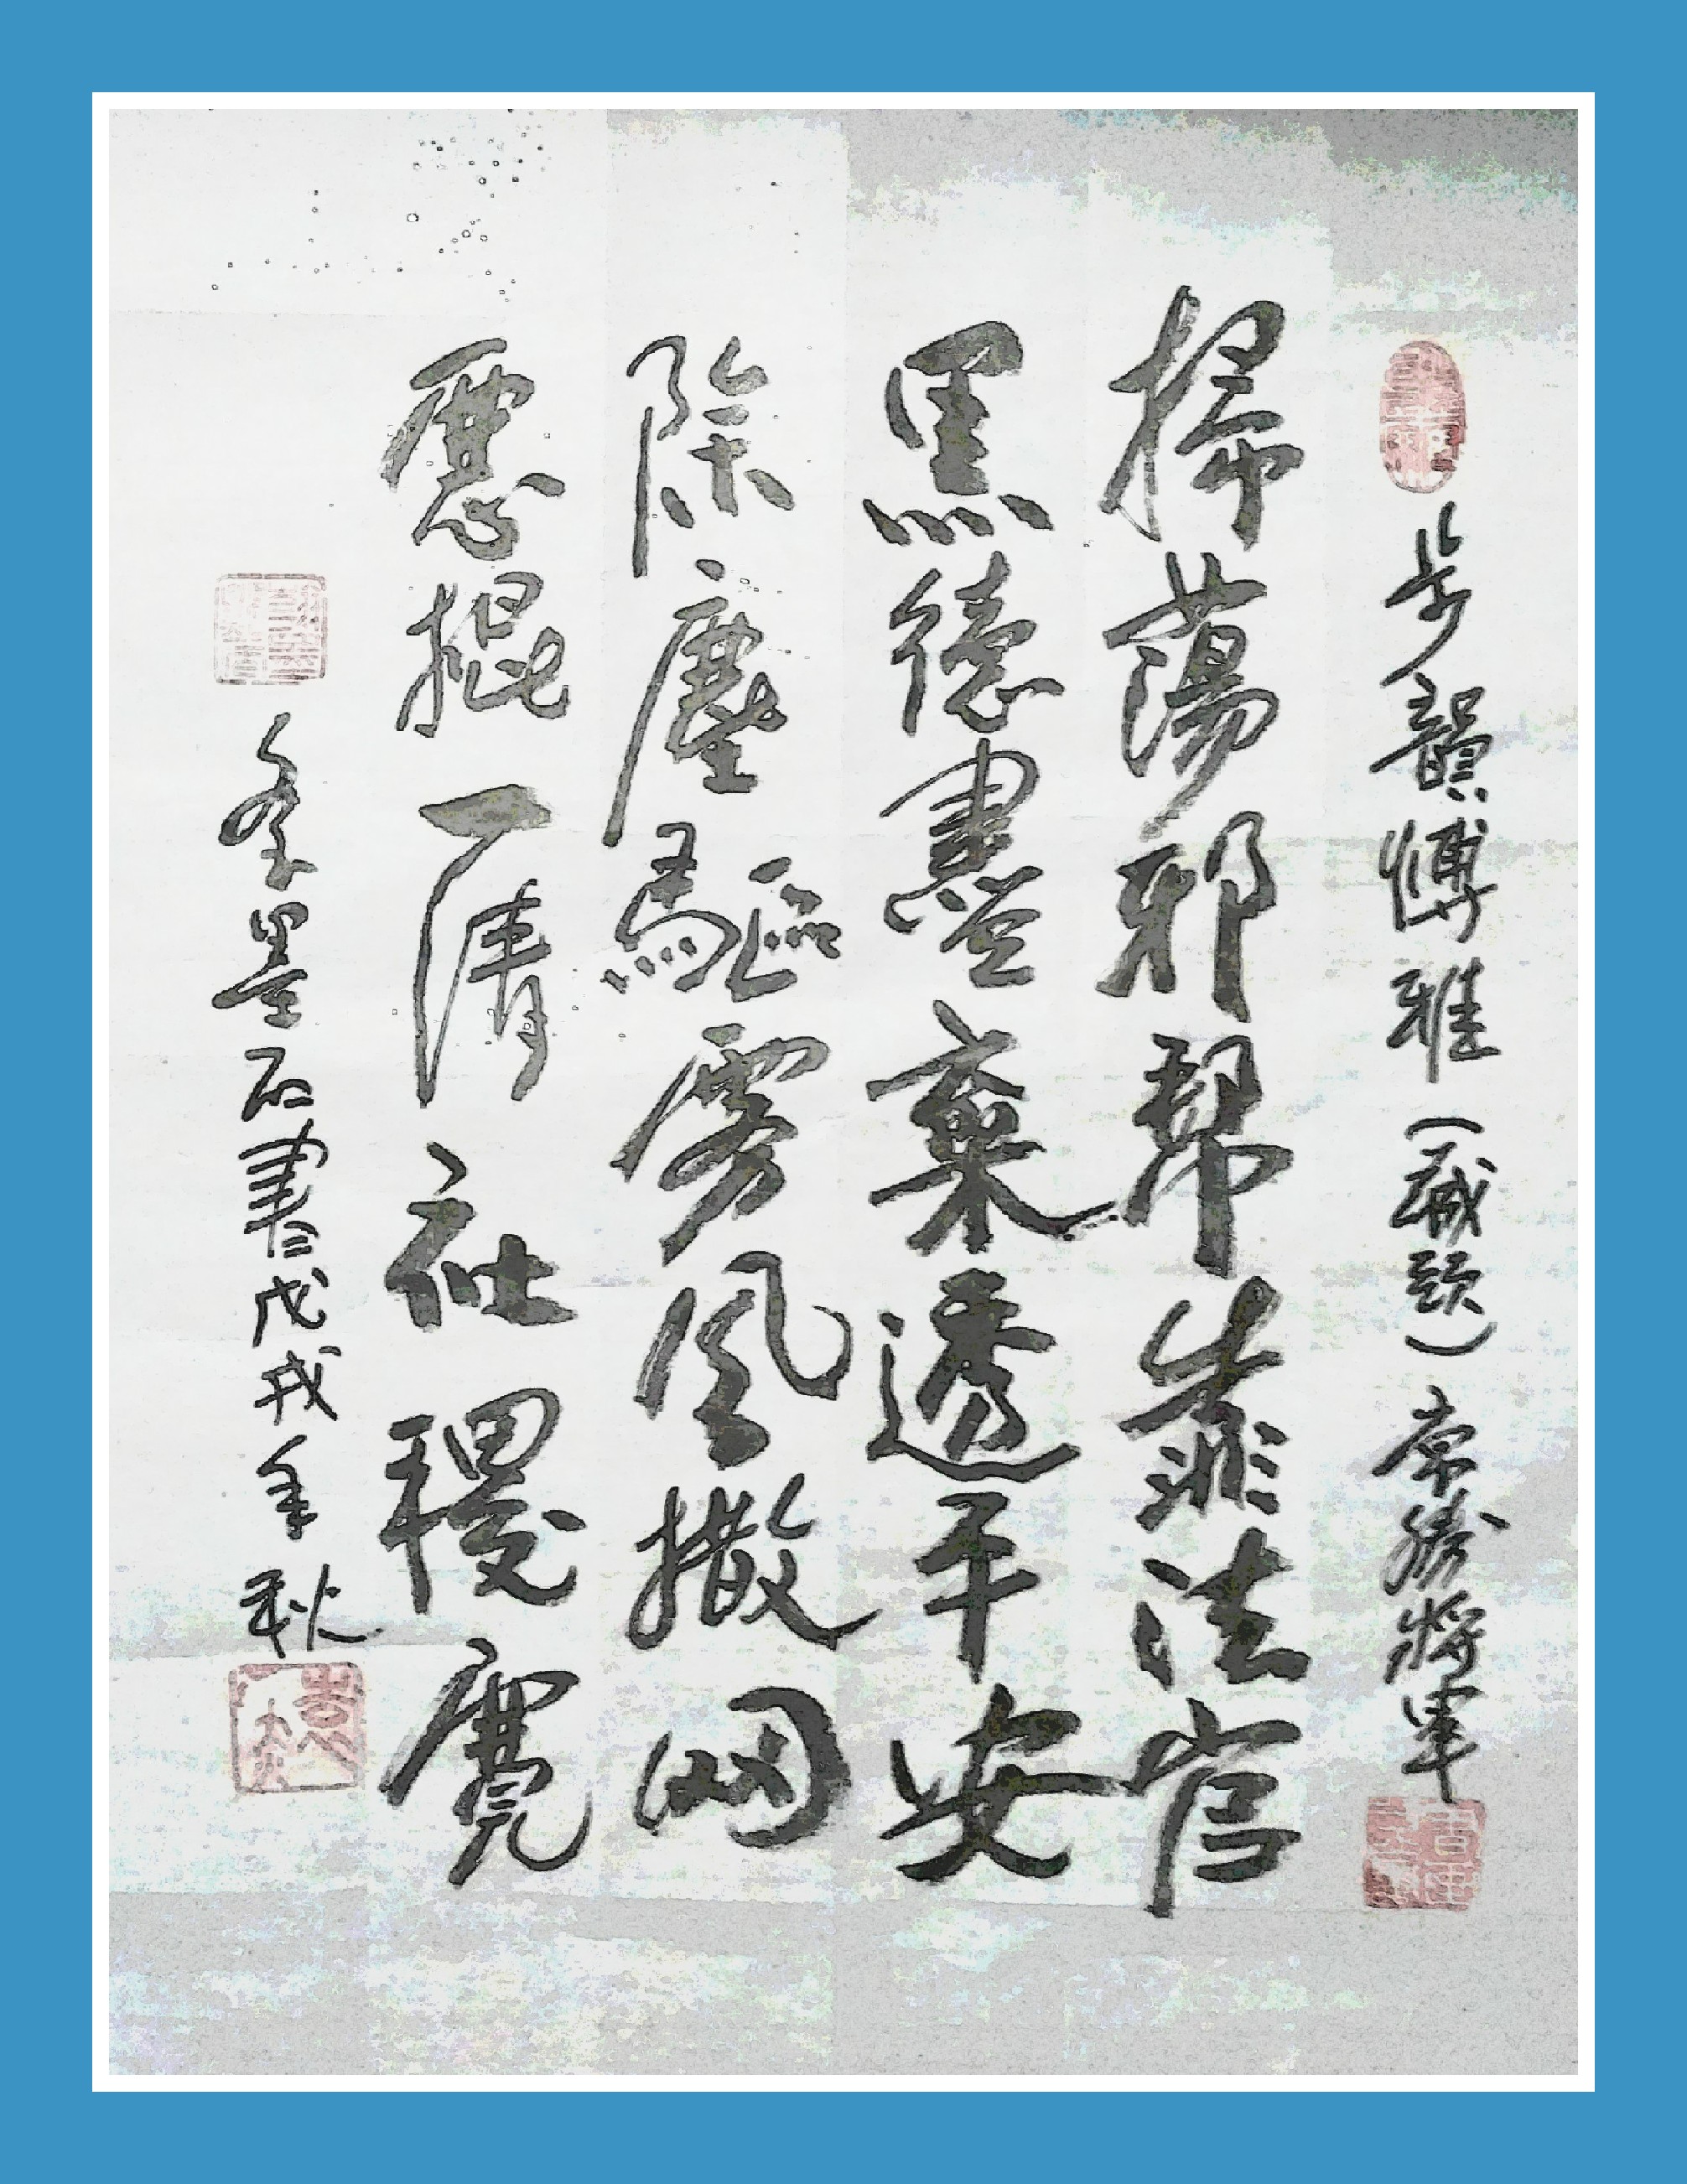 步韻博雅（藏頭）常勝將軍
掃蕩邪幫靠法官
黑德盡棄透平安
除塵驅霧風撒网
惡掍一清社稷寬
墨石書戊戌年秋